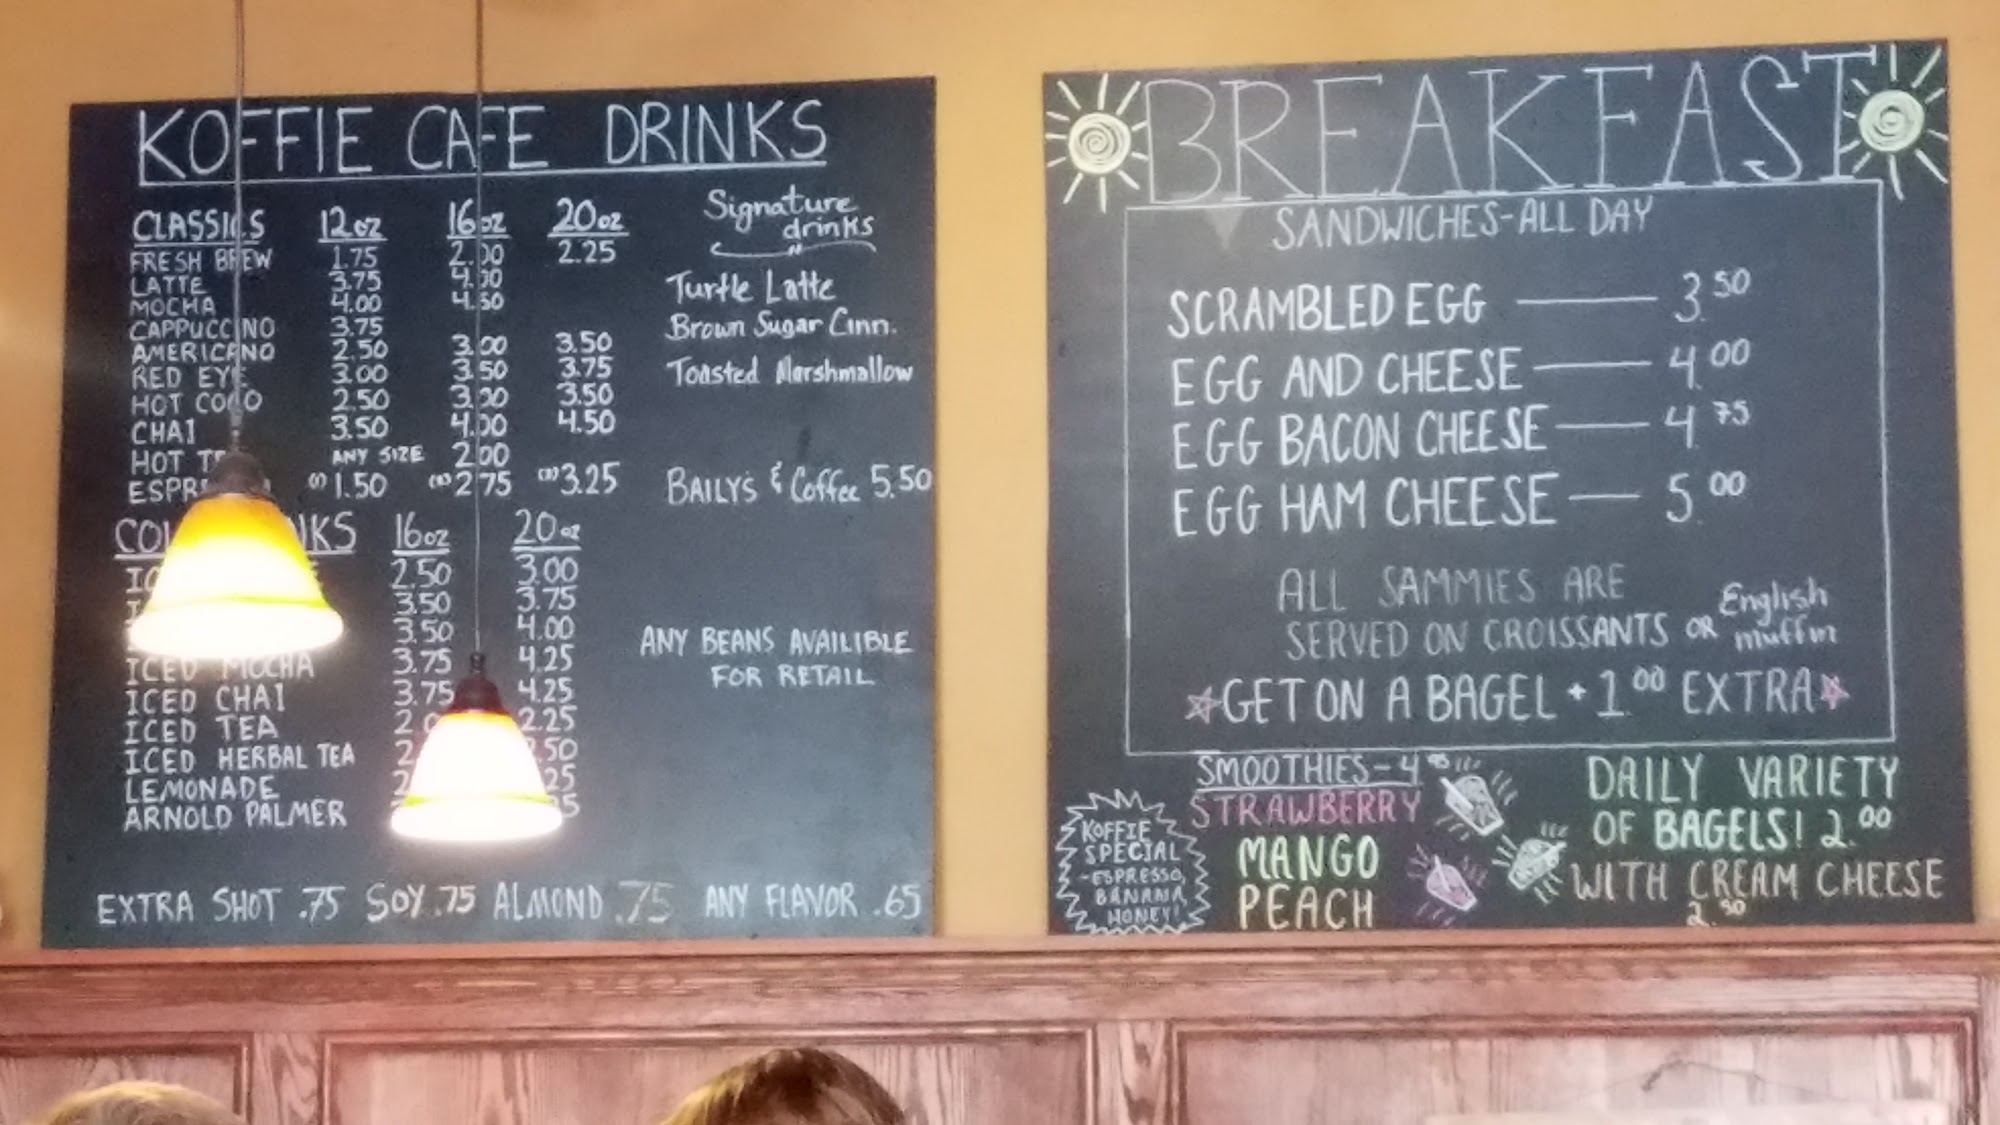 KOFFIE CAFE DRINKS
CLASSICS 12oz 16oz 20oz
FRESH BREW 1.75 2.00 2.25
LATTE 3.75
MOCHA 4.00
CAPPUCCINO 3.75
AMERICANO 2.50 3.00 3.50
RED EYE 3.00 3.50 3.75
HOT COCO 2.50 3.00 3.50
CHAI 3.50 4.00 4.50
HOT ANY SIZE 2.00
(1) 1.50 2.75 3.25
Signature
drinks
Turtle Latte
Brown Sugar Cinn.
Toasted Marshmallow
BAILYS & Coffee 5.50
16oz 20oz
2.50 3.00
3.50 3.75
3.50 4.00
ICED MOCHA 3.75 4.25
ICED CHAI 3.75 4.25
ICED TEA 2.25
ICED HERBAL TEA
LEMONADE
ARNOLD PALMER
ANY BEANS AVAILIBLE
FOR RETAIL
EXTRA SHOT .75 SOY .75 ALMOND .75 ANY FLAVOR .65
BREAKFAST
SANDWICHES-ALL DAY
SCRAMBLED EGG — 3.50
EGG AND CHEESE — 4.00
EGG BACON CHEESE — 4.75
EGG HAM CHEESE — 5.00
ALL SAMMIES ARE
SERVED ON CROISSANTS OR English muffin
GET ON A BAGEL + 1.00 EXTRA
SMOOTHIES-4
STRAWBERRY
MANGO
PEACH
KOFFIE
SPECIAL
-ESPRESSO,
BANANA,
HONEY!
DAILY VARIETY
OF BAGELS! 2.00
WITH CREAM CHEESE
2.50